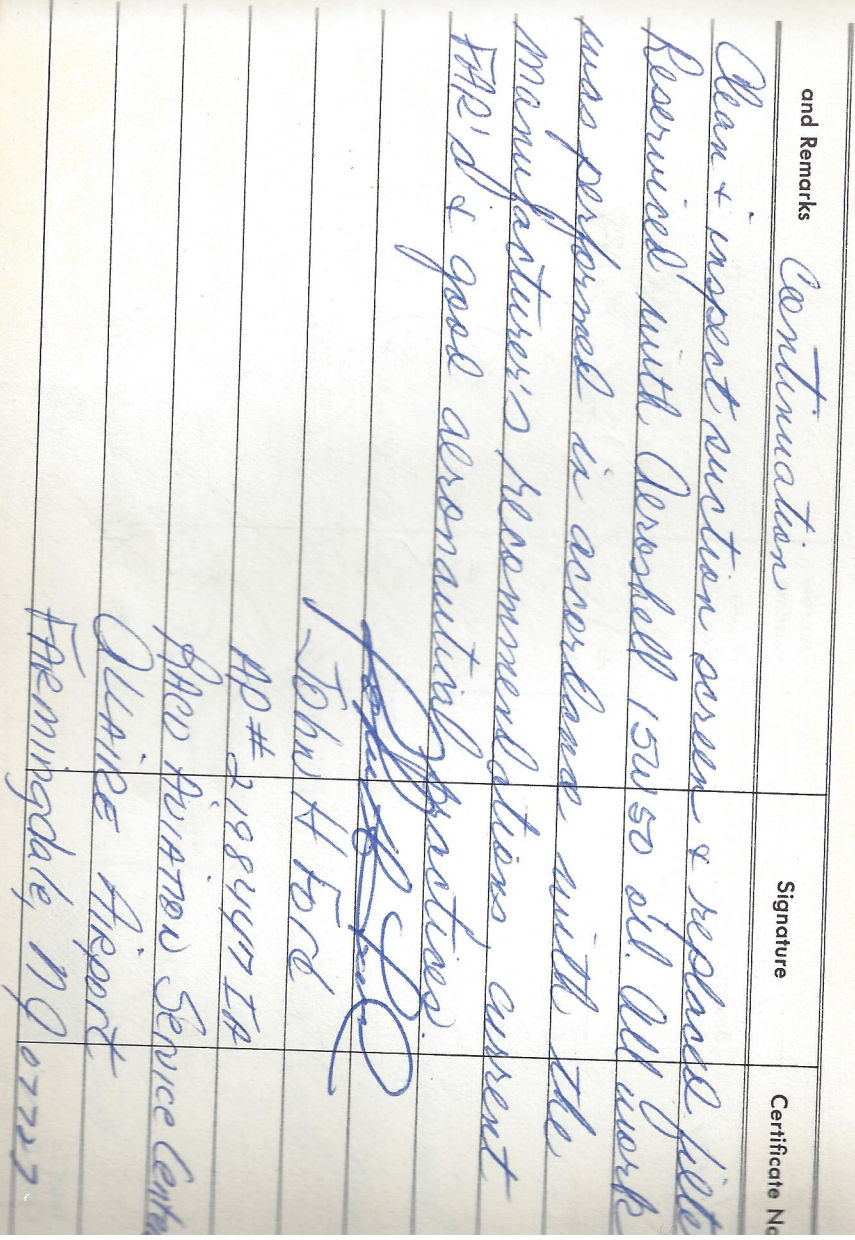 and Remarks Continuation Signature Certificate No
Clean + inspect suction screen & replaced filte
Reserviced with Aeroshell 15W50 oil. All work
was performed in accordance with the
manufacturer's recommendations, current
FAR's & good aeronautical practices.
John H Ford
AP# 2198447 IA
Aviation Service Center
Allaire Airport
Farmingdale, NJ 07727